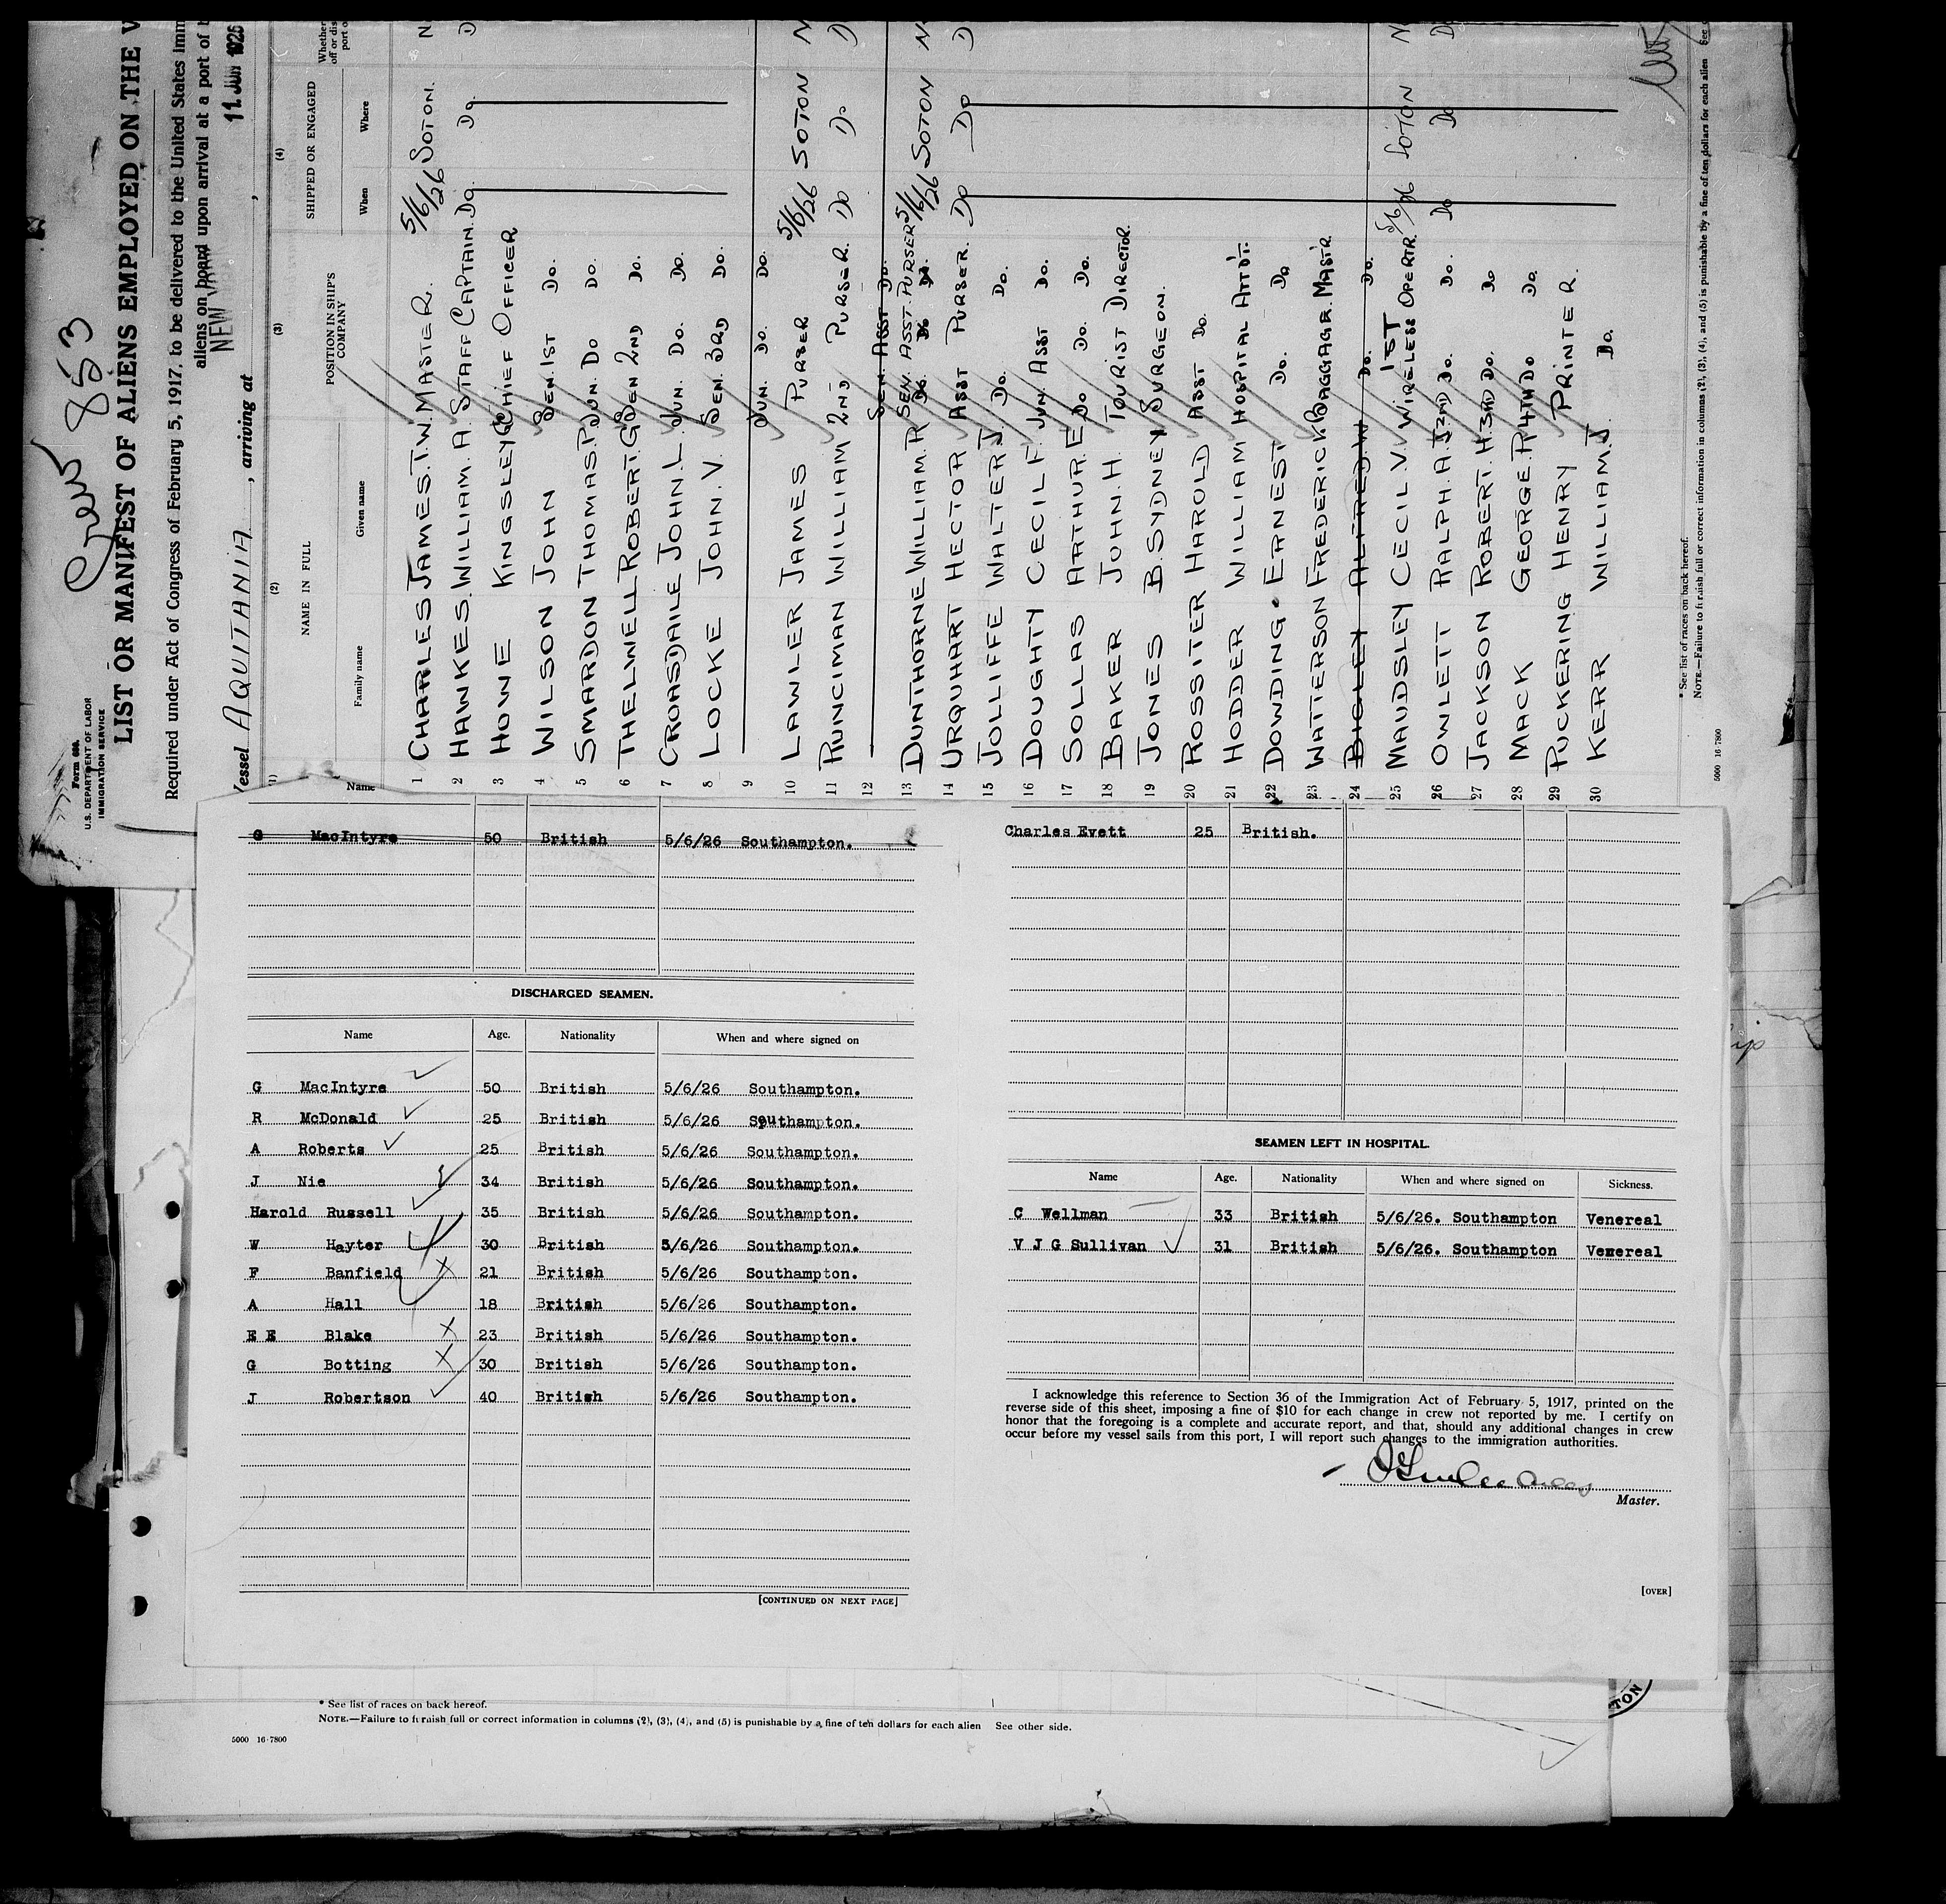 Crew 853
Form 680.
U.S. DEPARTMENT OF LABOR
IMMIGRATION SERVICE
LIST OR MANIFEST OF ALIENS EMPLOYED ON THE V
Required under Act of Congress of February 5, 1917, to be delivered to the United States imm
aliens on board upon arrival at a port of
Vessel AQUITANIA, arriving at NEW YORK, 11 JUN 1926
(1) (2) (3) (4)
NAME IN FULL POSITION IN SHIP'S COMPANY SHIPPED OR ENGAGED
Family name Given name When Where
1 CHARLES JAMES.T.W. MASTER. 5/6/26 SOTON.
2 HAWKES. WILLIAM. A. STAFF CAPTAIN. DO. DO.
3 HOWE KINGSLEY CHIEF OFFICER
4 WILSON JOHN SEN. 1ST DO.
5 SMARDON THOMAS.P. JUN. DO DO.
6 THELWELL ROBERT.G. SEN 2ND DO.
7 CROASDAILE JOHN.L. JUN. DO. DO.
8 LOCKE JOHN.V. SEN. 3RD DO.
9 JUN. DO. DO.
10 LAWLER JAMES PURSER 5/6/26 SOTON
11 RUNCIMAN WILLIAM 2ND PURSER. DO DO
12 SEN. ASST DO.
13 DUNTHORNE WILLIAM.R SEN. ASST. PURSER 5/6/26 SOTON
14 URQUHART HECTOR ASST PURSER. DO DO
15 JOLLIFFE WALTER J. DO. DO.
16 DOUGHTY CECIL F. JUN. ASST DO.
17 SOLLAS ARTHUR.E. DO DO. DO.
18 BAKER JOHN.H. TOURIST DIRECTOR.
19 JONES B.SYDNEY SURGEON.
20 ROSSITER HAROLD ASST DO.
21 HODDER WILLIAM HOSPITAL ATTDT.
22 DOWDING. ERNEST DO. DO
23 WATTERSON FREDERICK BAGGAGE. MASTR
24 BIGLEY ALFRED.W DO. DO.
25 MAUDSLEY CECIL.V. 1ST WIRELESS OPERTR. 5/6/26 SOTON
26 OWLETT RALPH.A. 2ND DO. DO. DO DO
27 JACKSON ROBERT.H. 3RD DO. DO
28 MACK GEORGE.P. 4TH DO DO.
29 PUCKERING HENRY PRINTER.
30 KERR WILLIAM.J. DO.
* See list of races on back hereof.
NOTE.—Failure to furnish full or correct information in columns (2), (3), (4), and (5) is punishable by a fine of ten dollars for each alien See
5000 16-7800
Name
G MacIntyre 50 British 5/6/26 Southampton.
DISCHARGED SEAMEN.
Name Age. Nationality When and where signed on
G MacIntyre 50 British 5/6/26 Southampton.
R McDonald 25 British 5/6/26 Southampton.
A Roberts 25 British 5/6/26 Southampton.
J Nie 34 British 5/6/26 Southampton.
Harold Russell 35 British 5/6/26 Southampton.
W Hayter 30 British 5/6/26 Southampton.
F Banfield 21 British 5/6/26 Southampton.
A Hall 18 British 5/6/26 Southampton.
E E Blake 23 British 5/6/26 Southampton.
G Botting 30 British 5/6/26 Southampton.
J Robertson 40 British 5/6/26 Southampton.
[CONTINUED ON NEXT PAGE]
Charles Evett 25 British.
SEAMEN LEFT IN HOSPITAL.
Name Age. Nationality When and where signed on Sickness.
C Wellman 33 British 5/6/26. Southampton Venereal
V J G Sullivan 31 British 5/6/26. Southampton Venereal
I acknowledge this reference to Section 36 of the Immigration Act of February 5, 1917, printed on the
reverse side of this sheet, imposing a fine of $10 for each change in crew not reported by me. I certify on
honor that the foregoing is a complete and accurate report, and that, should any additional changes in crew
occur before my vessel sails from this port, I will report such changes to the immigration authorities.
Master.
[OVER]
* See list of races on back hereof.
NOTE.—Failure to furnish full or correct information in columns (2), (3), (4), and (5) is punishable by a fine of ten dollars for each alien See other side.
5000 16-7800
TON